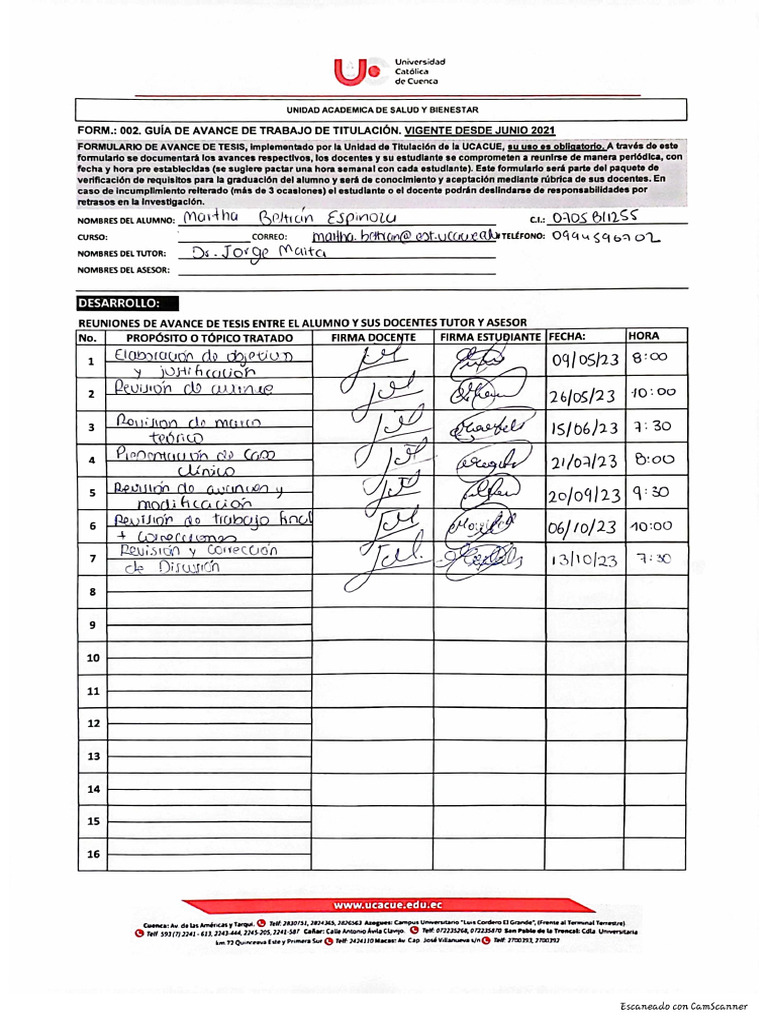 Universidad
Católica
de Cuenca
UNIDAD ACADEMICA DE SALUD Y BIENESTAR
FORM.: 002. GUÍA DE AVANCE DE TRABAJO DE TITULACIÓN. VIGENTE DESDE JUNIO 2021
FORMULARIO DE AVANCE DE TESIS, implementado por la Unidad de Titulación de la UCACUE, su uso es obligatorio. A través de este
formulario se documentará los avances respectivos, los docentes y su estudiante se comprometen a reunirse de manera periódica, con
fecha y hora pre establecidas (se sugiere pactar una hora semanal con cada estudiante). Este formulario será parte del paquete de
verificación de requisitos para la graduación del alumno y será de conocimiento y aceptación mediante rúbrica de sus docentes. En
caso de incumplimiento reiterado (más de 3 ocasiones) el estudiante o el docente podrán deslindarse de responsabilidades por
retrasos en la investigación.
NOMBRES DEL ALUMNO: Martha Beltrán Espinoza C.I.: 0705811255
CURSO: CORREO: martha.beltran@est.ucacue.edu TELÉFONO: 0994596702
NOMBRES DEL TUTOR: Dr. Jorge Maita
NOMBRES DEL ASESOR:
DESARROLLO:
REUNIONES DE AVANCE DE TESIS ENTRE EL ALUMNO Y SUS DOCENTES TUTOR Y ASESOR
No. PROPÓSITO O TÓPICO TRATADO FIRMA DOCENTE FIRMA ESTUDIANTE FECHA: HORA
1 Elaboración de objetivo y justificación 09/05/23 8:00
2 Revisión de avance 26/05/23 10:00
3 Revision de marco teórico 15/06/23 7:30
4 Presentación de caso clínico 21/07/23 8:00
5 Revisión de avances y modificación 20/09/23 9:30
6 Revisión de trabajo final + correcciones 06/10/23 10:00
7 Revisión y corrección de Discusión 13/10/23 7:30
8
9
10
11
12
13
14
15
16
www.ucacue.edu.ec
Cuenca: Av. de las Américas y Tarqui. Telf: 2830751, 2824365, 2826563 Azogues: Campus Universitario "Luis Cordero El Grande", (Frente al Terminal Terrestre)
Telf 593 (7) 2241 - 613, 2243-444, 2245-205, 2241-587 Cañar: Calle Antonio Ávila Clavijo. Telf: 072235268, 072235870 San Pablo de la Troncal: Cdla Universitaria
km.72 Quinceava Este y Primera Sur Telf: 2424110 Macas: Av. Cap. José Villanueva s/n Telf: 2700393, 2700392
Escaneado con CamScanner